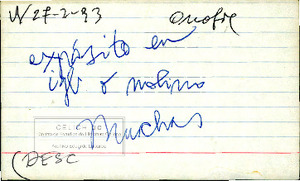 N 27-2-93 Onofre
expósito en
igl o molino
Murchas
(DESC